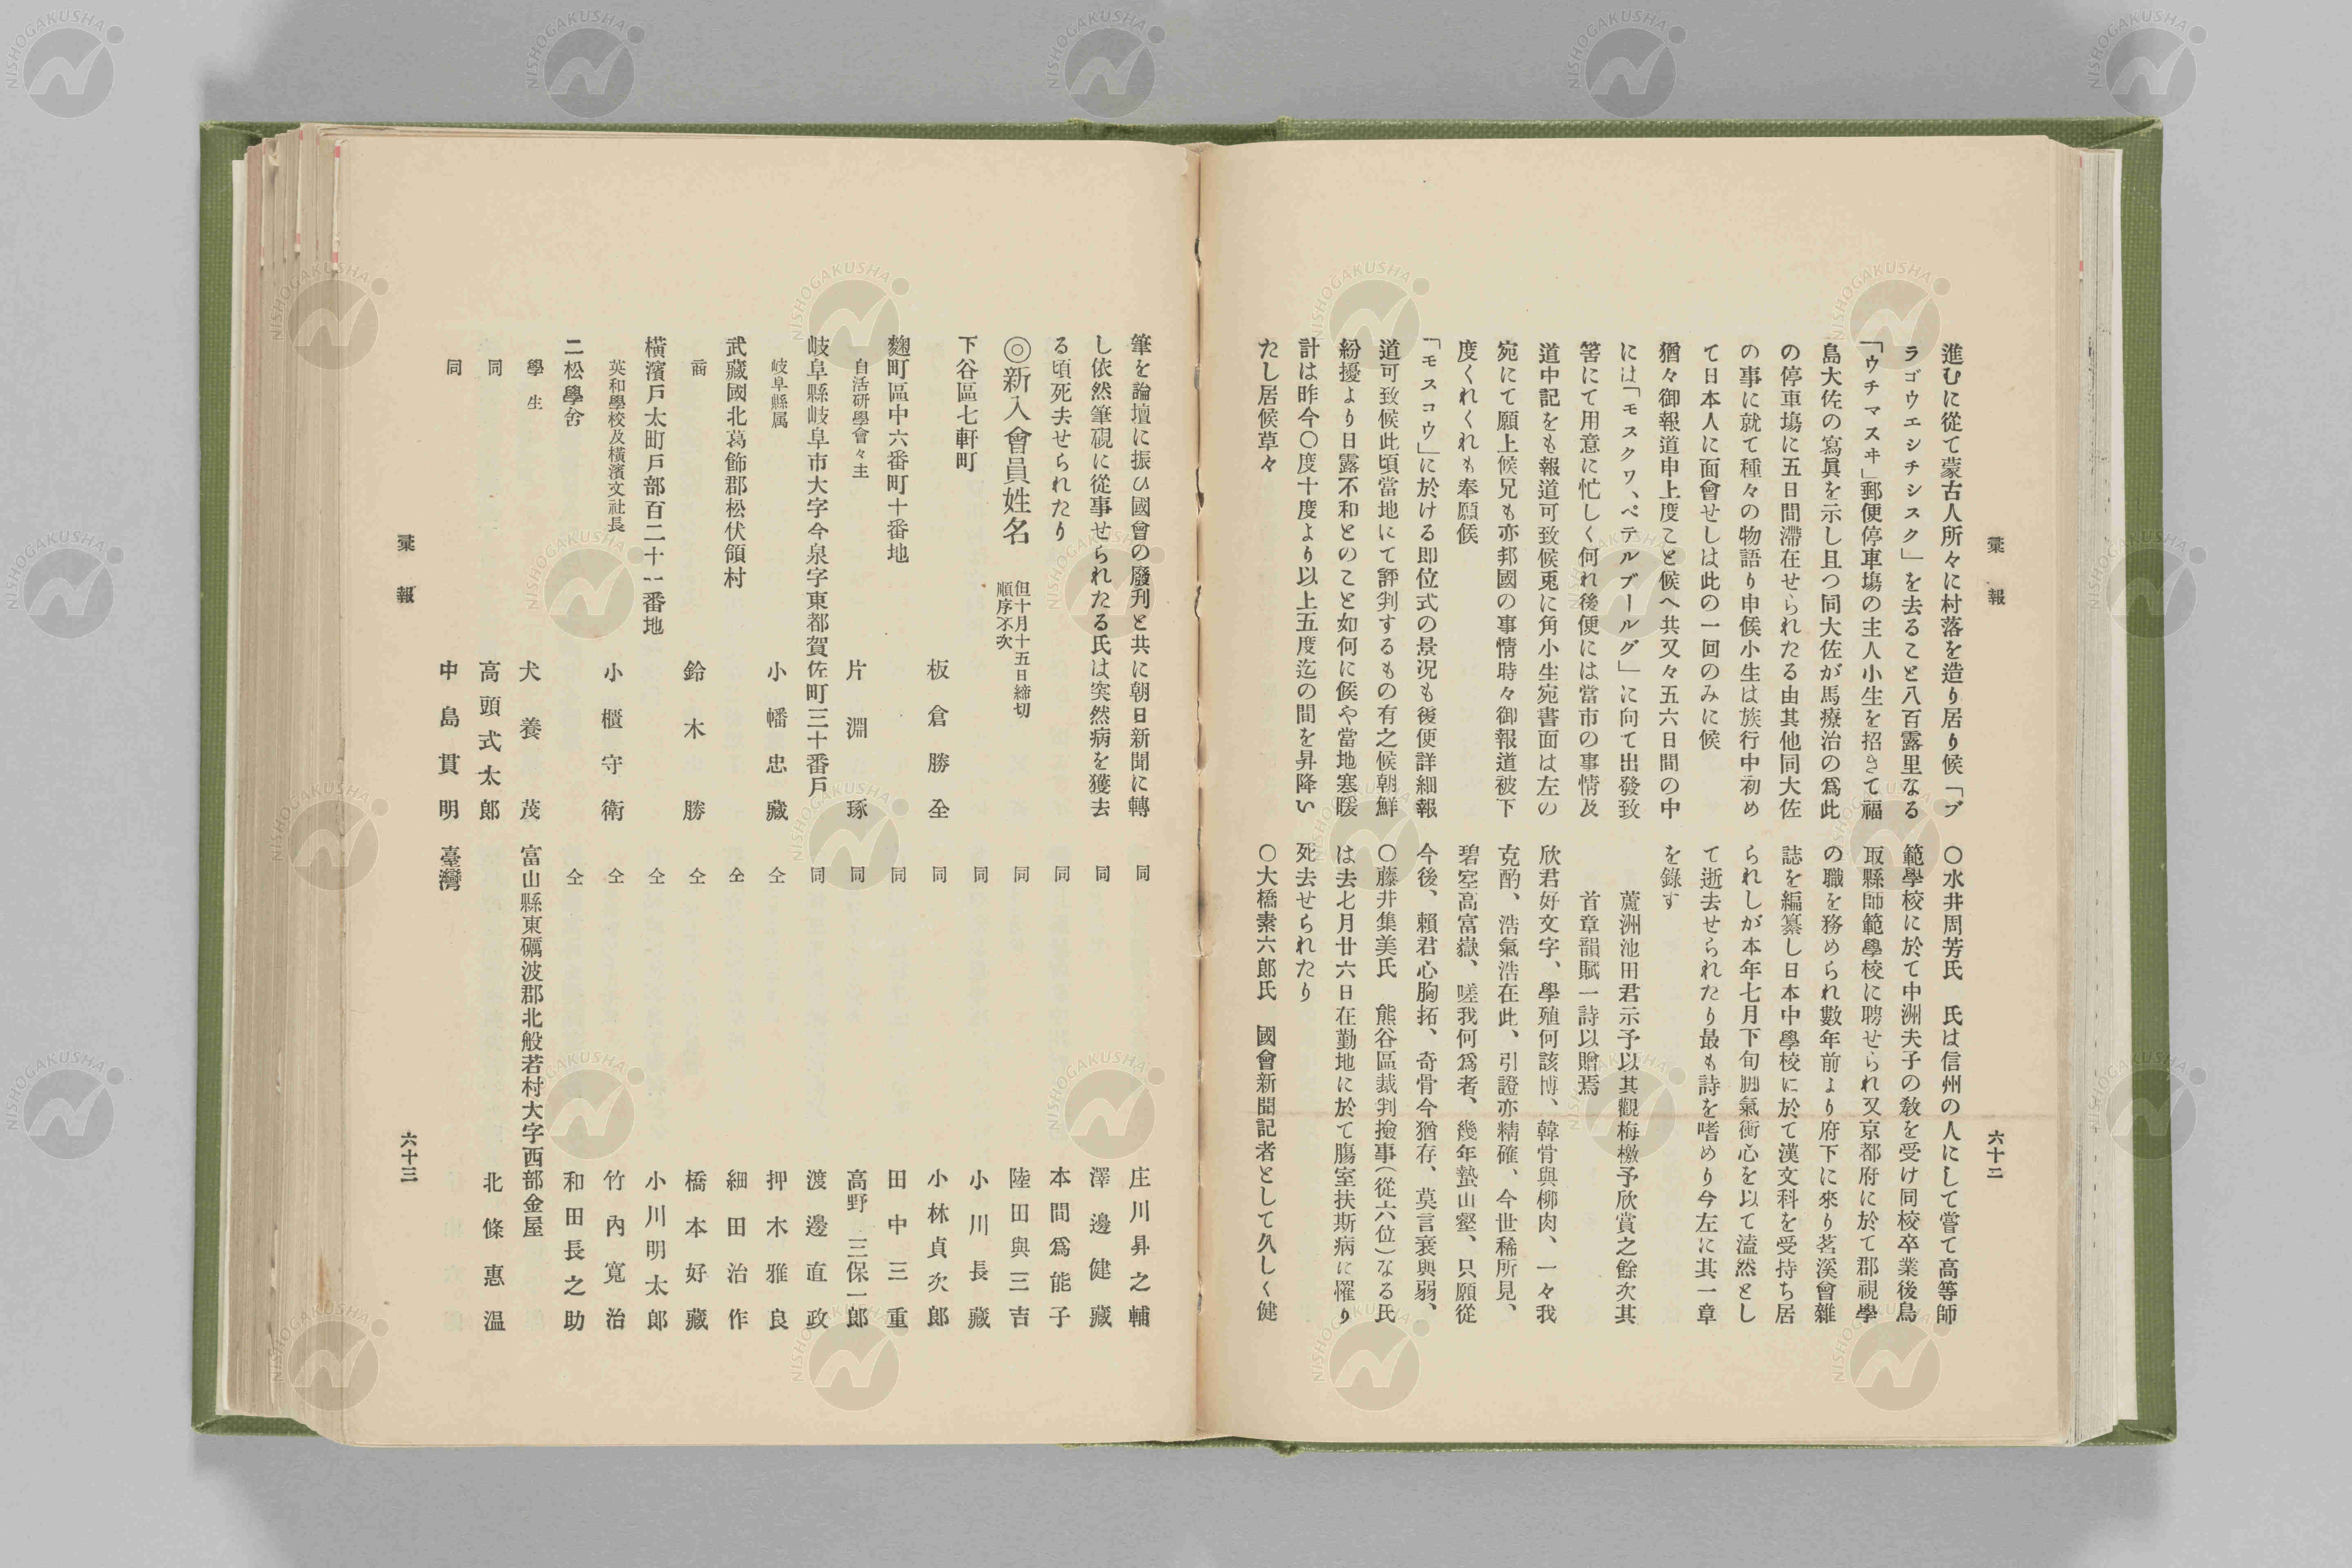 彙報
六十二
進むに從て蒙古人所々に村落を造り居り候「ブ
ラゴウエシチシスク」を去ること八百露里なる
「ウチマスヰ」郵便停車塲の主人小生を招きて福
島大佐の寫眞を示し且つ同大佐が馬療治の爲此
の停車塲に五日間滯在せられたる由其他同大佐
の事に就て種々の物語り申候小生は族行中初め
て日本人に面會せしは此の一回のみに候
猶々御報道申上度こと候へ共又々五六日間の中
には「モスクワ、ペテルブールグ」に向て出發致
筈にて用意に忙しく何れ後便には當市の事情及
道中記をも報道可致候兎に角小生宛書面は左の
宛にて願上候兄も亦邦國の事情時々御報道被下
度くれくれも奉願候
「モスコウ」に於ける即位式の景況も後便詳細報
道可致候此頃當地にて評判するもの有之候朝鮮
紛擾より日露不和とのこと如何に候や當地寒暖
計は昨今〇度十度より以上五度迄の間を昇降い
たし居候草々
〇水井周芳氏　氏は信州の人にして嘗て高等師
範學校に於て中洲夫子の敎を受け同校卒業後鳥
取縣師範學校に聘せられ又京都府に於て郡視學
の職を務められ數年前より府下に來り茗溪會雜
誌を編纂し日本中學校に於て漢文科を受持ち居
られしが本年七月下旬脚氣衝心を以て溘然とし
て逝去せられたり最も詩を嗜めり今左に其一章
を錄す
蘆洲池田君示予以其觀梅檄予欣賞之餘次其
首章韻賦一詩以贈焉
欣君好文字、學殖何該博、韓骨與柳肉、一々我
克酌、浩氣浩在此、引證亦精確、今世稀所見、
碧空高富嶽、嗟我何爲者、幾年蟄山壑、只願從
今後、賴君心胸拓、奇骨今猶存、莫言衰與弱、
〇藤井集美氏　熊谷區裁判撿事（從六位）なる氏
は去七月廿六日在勤地に於て膓室扶斯病に罹り
死去せられたり
〇大橋素六郎氏　國會新聞記者として久しく健
筆を論壇に振ひ國會の廢刊と共に朝日新聞に轉
し依然筆硯に從事せられたる氏は突然病を獲去
る頃死去せられたり
◎新入會員姓名　但十月十五日締切
順序不次
下谷區七軒町
板倉勝全
麴町區中六番町十番地
自活硏學會々主　片淵琢
岐阜縣岐阜市大字今泉字東都賀佐町三十番戶
岐阜縣属　小幡忠藏
武藏國北葛飾郡松伏領村
商　鈴木勝
橫濱戶太町戶部百二十一番地
英和學校及橫濱文社長　小櫃守衛
二松學舍
學生　犬養茂
同　高頭式太郎
同　中島貫明
同　庄川昇之輔
同　澤邊健藏
同　本間爲能子
同　陸田與三吉
同　小川長藏
同　小林貞次郎
同　田中三重
同　高野三保一郎
同　渡邊直政
仝　押木雅良
仝　細田治作
仝　橋本好藏
仝　小川明太郎
仝　竹內寬治
仝　和田長之助
富山縣東礪波郡北般若村大字西部金屋
北條惠温
臺灣
彙報
六十三
NISHOGAKUSHA